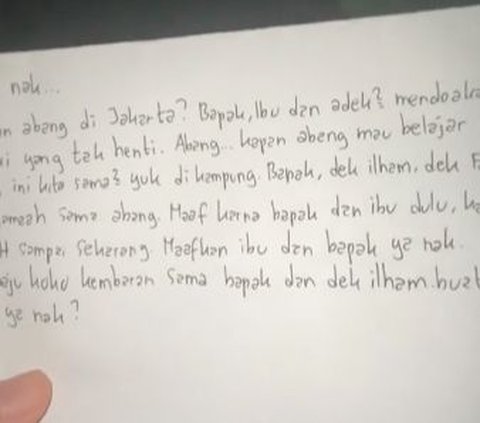 nak...
n abang di Jakarta? Bapak, Ibu dan adek² mendoaka
i yang tak henti. Abang... kapan abang mau belajar
ini kita sama² yuk di kampung. Bapak, dek ilham, dek F
amaah sama abang. Maaf karna bapak dan ibu dulu, ka
H sampai sekarang Maafkan ibu dan bapak ya nak.
aju koko kembaran sama bapak dan dek ilham buat
ya nak?